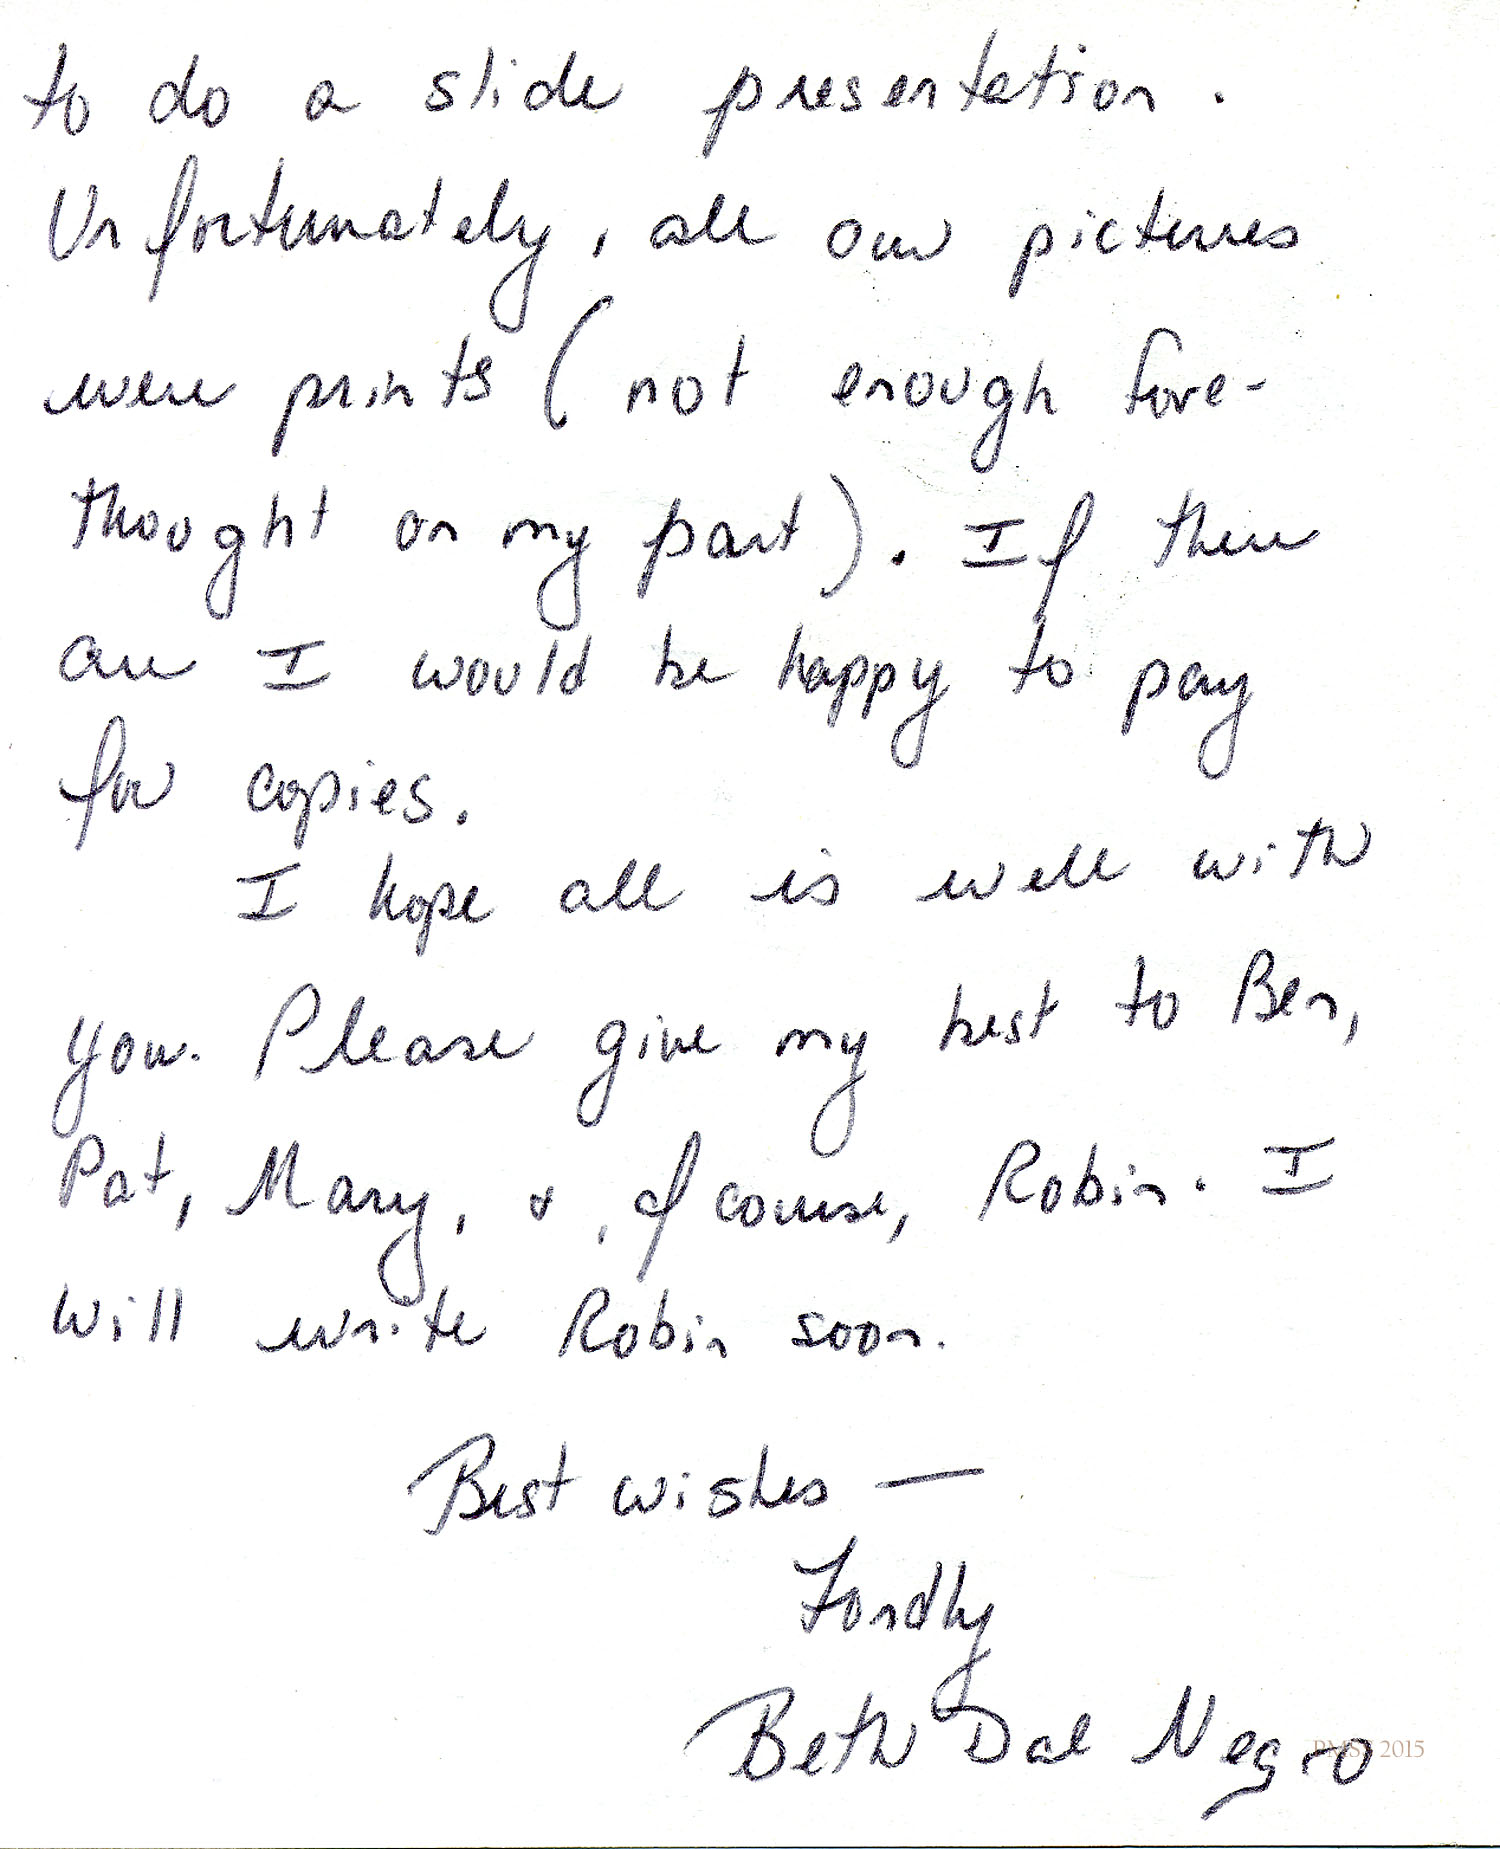 to do a slide presentation.
Unfortunately, all our pictures
were prints (not enough fore-
thought on my part). If there
are I would be happy to pay
for copies.
I hope all is well with
you. Please give my best to Ben,
Pat, Mary, & , of course, Robin. I
will write Robin soon.
Best wishes —
Fondly
Beth Dal Negro
2015